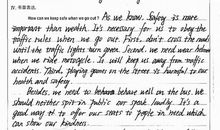 IV. 书面表达.
How can we keep safe when we go out? As we know. Safety is more
important than wealth. It's necessary for us to obey the
traffic rules when we go out. First, don't cross the road
until the traffic lights turn green. Second, we need wear helmet
when we ride motocycle. It will keep us away from traffic
accidents. Third, playing games on the street is harmful to our
health and safety.
Besides, we need to behave well on the bus. We
should neither spit in public nor speak loudly. It's a
good way to offer our seats to people in need which
can show our kindness.